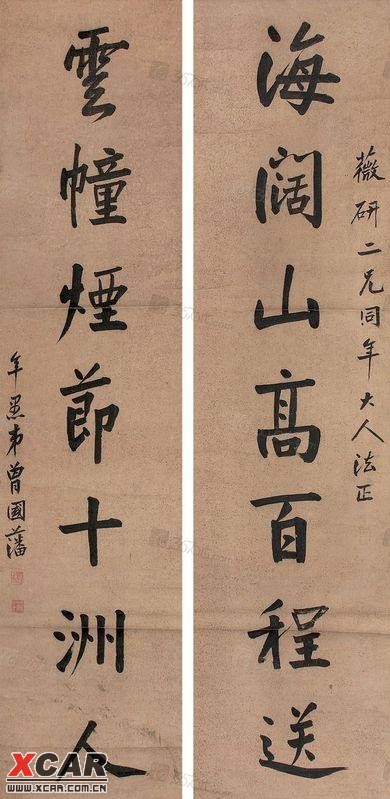 薇研二兄同年大人法正
海闊山高百程送
雲幢煙節十洲人
年愚弟曾國藩
XCAR
WWW.XCAR.COM.CN